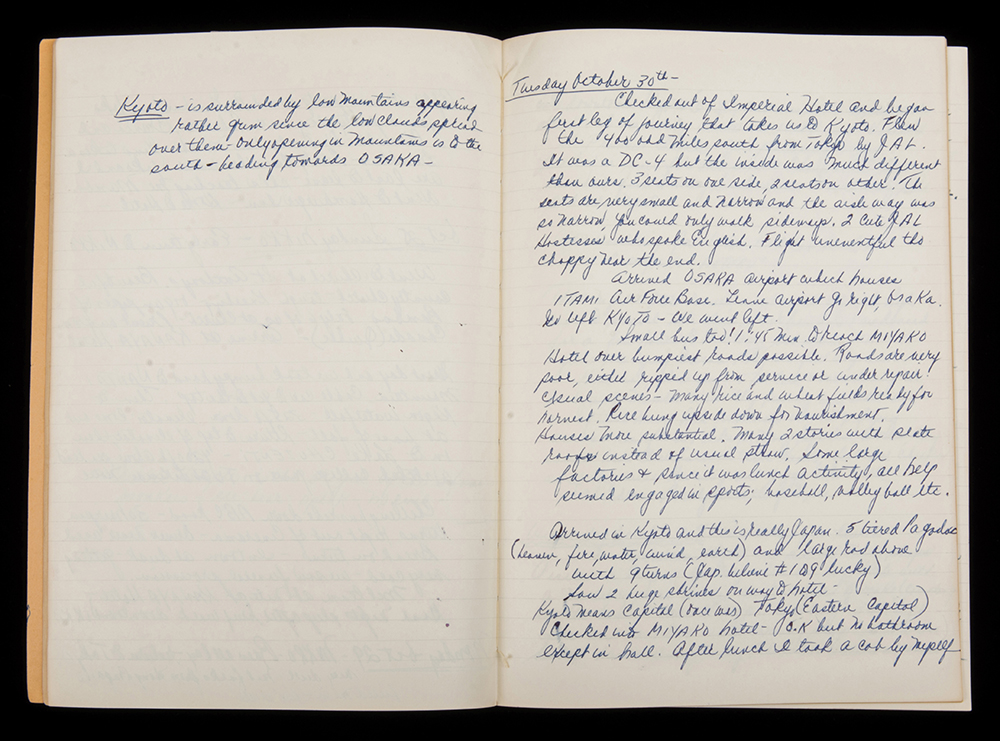 Kyoto - is surrounded by low mountains appearing
rather grim since the low clouds spread
over them - only opening in mountains is to the
south - heading towards OSAKA -
Tuesday October 30th -
Checked out of Imperial Hotel and began
first leg of journey that takes us to Kyoto. Flew
the 400 odd miles south from Tokyo by JAL.
It was a DC-4 but the inside was much different
than ours. 3 seats on one side, 2 seats on other. The
seats are very small and narrow and the aisle way was
so narrow, you could only walk sideways. 2 cute JAL
Hostesses who spoke English. Flight uneventful tho
choppy near the end.
Arrived OSAKA airport which houses
ITAMI Air Force Base. Leave airport go right, Osaka.
Go left KYOTO - We went left.
Small bus too! 1:45 min. to reach MIYAKO
Hotel over bumpiest roads possible. Roads are very
poor, either ripped up from service or under repair.
Usual scenes - Many rice and wheat fields ready for
harvest. Rice hung upside down for nourishment.
Houses more substantial. Many 2 stories with slate
roofs instead of usual straw. Some large
factories & since it was lunch activity, all help
seemed engaged in sports; baseball, volley ball etc.
Arrived in Kyoto and this is really Japan. 5 tiered Pagodas
(heaven, fire, water, wind, earth) and large rod above
with 9 turns (Jap. believe # 1 to 9 lucky)
Saw 2 huge shrines on way to hotel -
Kyoto means Capitol (once was) Tokyo (Eastern Capitol)
Checked into MIYAKO hotel - O.K but no bathroom
except in hall. After lunch I took a cab by myself